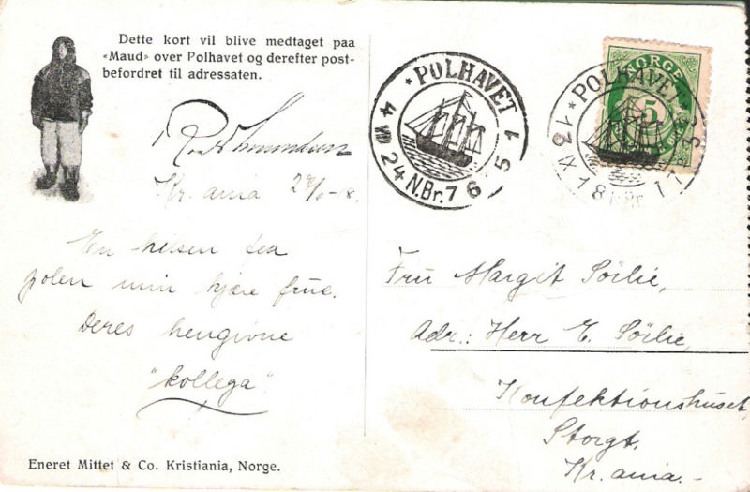 Dette kort vil blive medtaget paa
«Maud» over Polhavet og derefter post-
befordret til adressaten.
Roald Amundsen
Kr.ania 24/6-18.
En hilsen fra
polen min kjære frue.
Deres hengivne
"kollega"
Eneret Mittet & Co. Kristiania, Norge.
* POLHAVET
4 VIII 24 N.Br. 76 51
NORGE
5
* POLHAVET
13 IX 18 N.Br. 77 33
Fru Margit Söilie,
Adr.: Herr E. Söilie,
Konfektionshuset,
Storgt.
Kr.ania.-